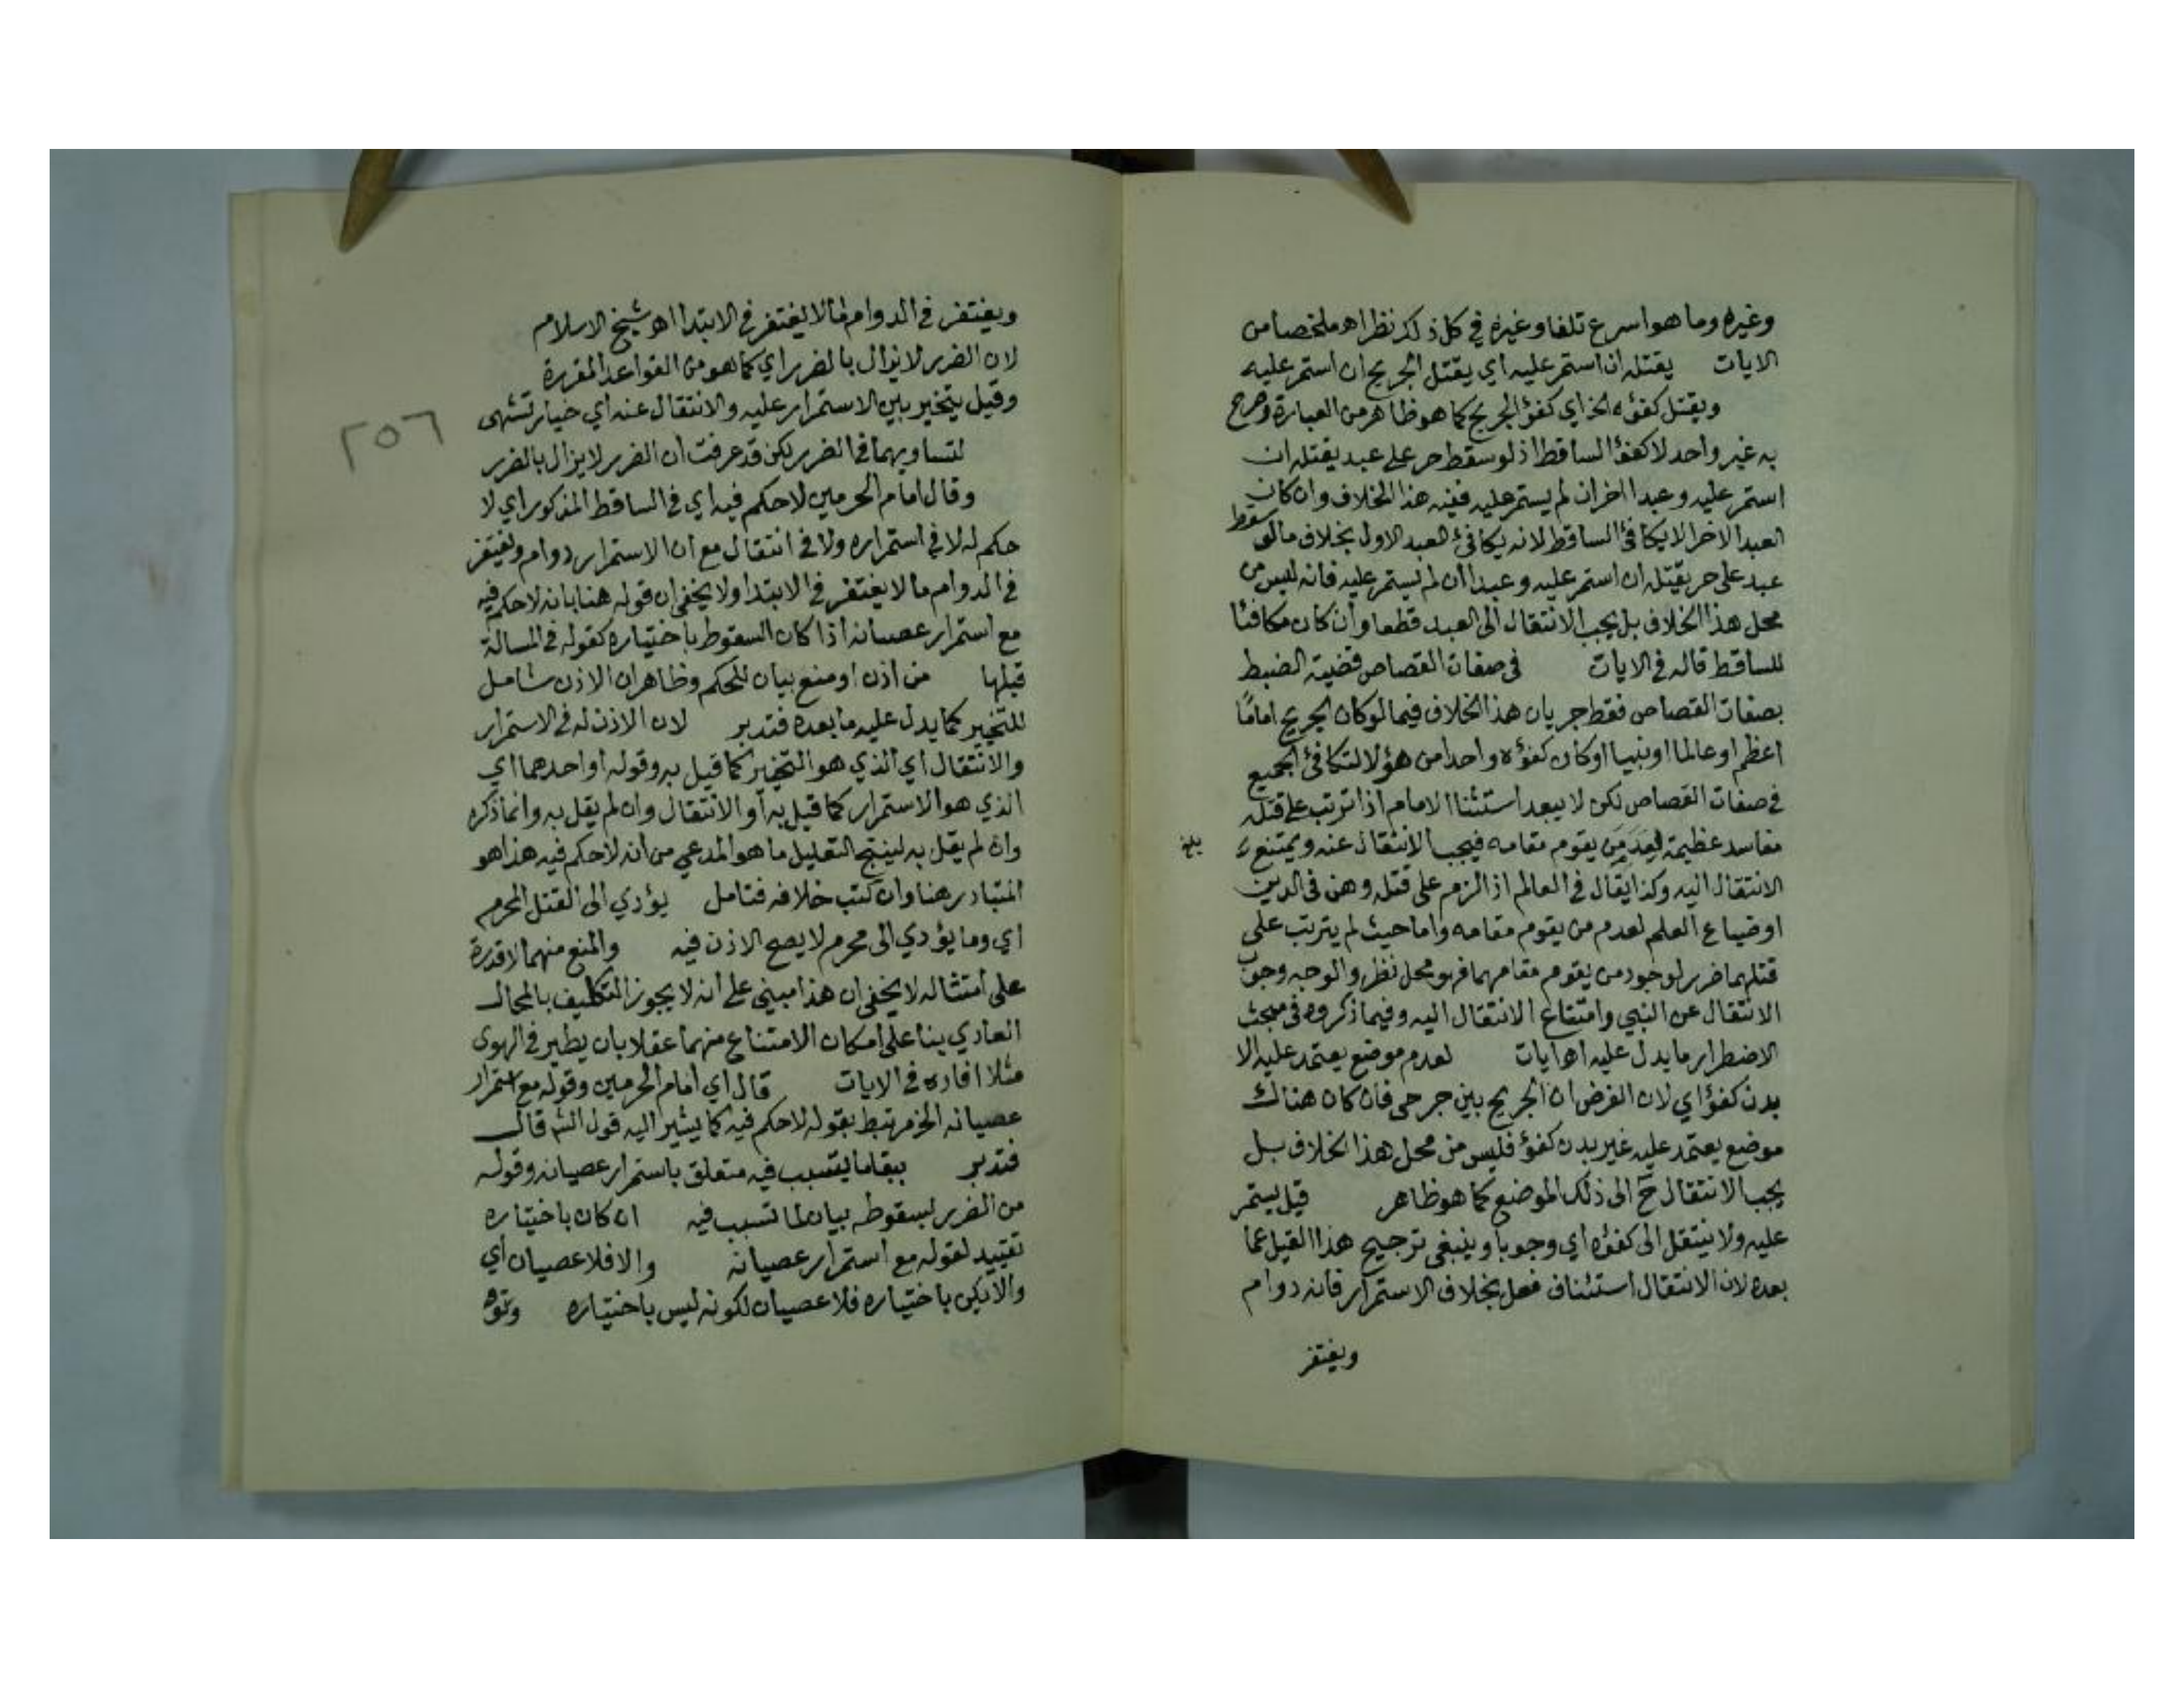 وغيره وما هو اسرع تلفا وغيره في كل ذلك نظر اه ملخصا من
الايات يقتله ان استمر عليه اي يقتل الجريح ان استمر عليه
ويقتل كفؤه الخ اي كفؤ الجريح كما هو ظاهر من العبارة وصرح
به غير واحد لا كفؤ الساقط اذ لو سقط حر على عبد يقتله ان
استمر عليه وعبدا اخر ان لم يستمر عليه ففيه هذا الخلاف وان كان
العبد الاخر لا يكافئ الساقط لانه يكافئ العبد الاول بخلاف ما لو سقط
عبد على حر يقتله ان استمر عليه وعبدا ان لم يستمر عليه فانه ليس من
محل هذا الخلاف بل يجب الانتقال الى العبد قطعا وان كان مكافئا
للساقط قاله في الايات في صفات القصاص قضية الضبط
بصفات القصاص فقط جريان هذا الخلاف فيما لو كان الجريح اماما
اعظم او عالما او نبيا او كان كفؤه واحدا من هؤلا لتكافئ الجميع
في صفات القصاص لكن لا يبعد استثنا الامام اذا ترتب على قتله
مفاسد عظيمة لعدم من يقوم مقامه فيجب الانتقال عنه ويمتنع
بلغ
الانتقال اليه وكذا يقال في العالم اذ الزم على قتله وهن في الدين
او ضياع العلم لعدم من يقوم مقامه واما حيث لم يترتب على
قتلهما ضرر لوجود من يقوم مقامهما فهو محل نظر والوجه وجوب
الانتقال عن النبي وامتناع الانتقال اليه وفيما ذكروه في مبحث
الاضطرار ما يدل عليه اه ايات لعدم موضع يعتمد عليه الا
بدن كفؤ اي لان الفرض ان الجريح بين جرحى فان كان هناك
موضع يعتمد عليه غير بدن كفؤ فليس من محل هذا الخلاف بل
يجب الانتقال ح الى ذلك الموضع كما هو ظاهر قيل يستمر
عليه ولا ينتقل الى كفؤه اي وجوبا وينبغي ترجيح هذا القيل عما
بعده لان الانتقال استئناف فعل بخلاف الاستمرار فانه دوام
ويغتفر
ويغتفر في الدوام ما لا يغتفر في الابتدا اه شيخ الاسلام
لان الضرر لا يزال بالضرر اي كما هو من القواعد المقررة
وقيل يتخير بين الاستمرار عليه والانتقال عنه اي خيار تشهى
٢٥٦
لتساويهما في الضرر لكن قد عرفت ان الضرر لا يزال بالضرر
وقال امام الحرمين لا حكم فيه اي في الساقط المذكور اي لا
حكم له لا في استمراره ولا في انتقال مع ان الاستمرار دوام ويغتفر
في الدوام ما لا يغتفر في الابتدا ولا يخفى ان قوله هنا بانه لا حكم فيه
مع استمرار عصيانه اذا كان السقوط باختياره كقوله في المسالة
قبلها من اذن او منع بيان للحكم وظاهر ان الاذن شامل
للتخيير كما يدل عليه ما بعده فتدبر لان الاذن له في الاستمرار
والانتقال اي الذي هو التخيير كما قيل به وقوله او احدهما اي
الذي هو الاستمرار كما قيل به او الانتقال وان لم يقل به وانما ذكره
وان لم يقل به لينتج التعليل ما هو المدعي من انه لا حكم فيه هذا هو
المتبادر هنا وان كتب خلافه فتامل يؤدي الى القتل المحرم
اي وما يؤدي الى محرم لا يصح الاذن فيه والمنع منهما لا قدرة
على امتثاله لا يخفى ان هذا مبني على انه لا يجوز التكليف بالمحال
العادي بنا على امكان الامتناع منهما عقلا بان يطير في الهوى
مثلا افاده في الايات قال اي امام الحرمين وقوله مع استمرار
عصيانه الخ مرتبط بقوله لا حكم فيه كما يشير اليه قول الش قال
فتدبر ببقا ما يتسبب فيه متعلق باستمرار عصيانه وقوله
من الضرر لسقوطه بيان لما تسبب فيه ان كان باختياره
تقييد لقوله مع استمرار عصيانه والا فلا عصيان اي
والا يكن باختياره فلا عصيان لكونه ليس باختياره